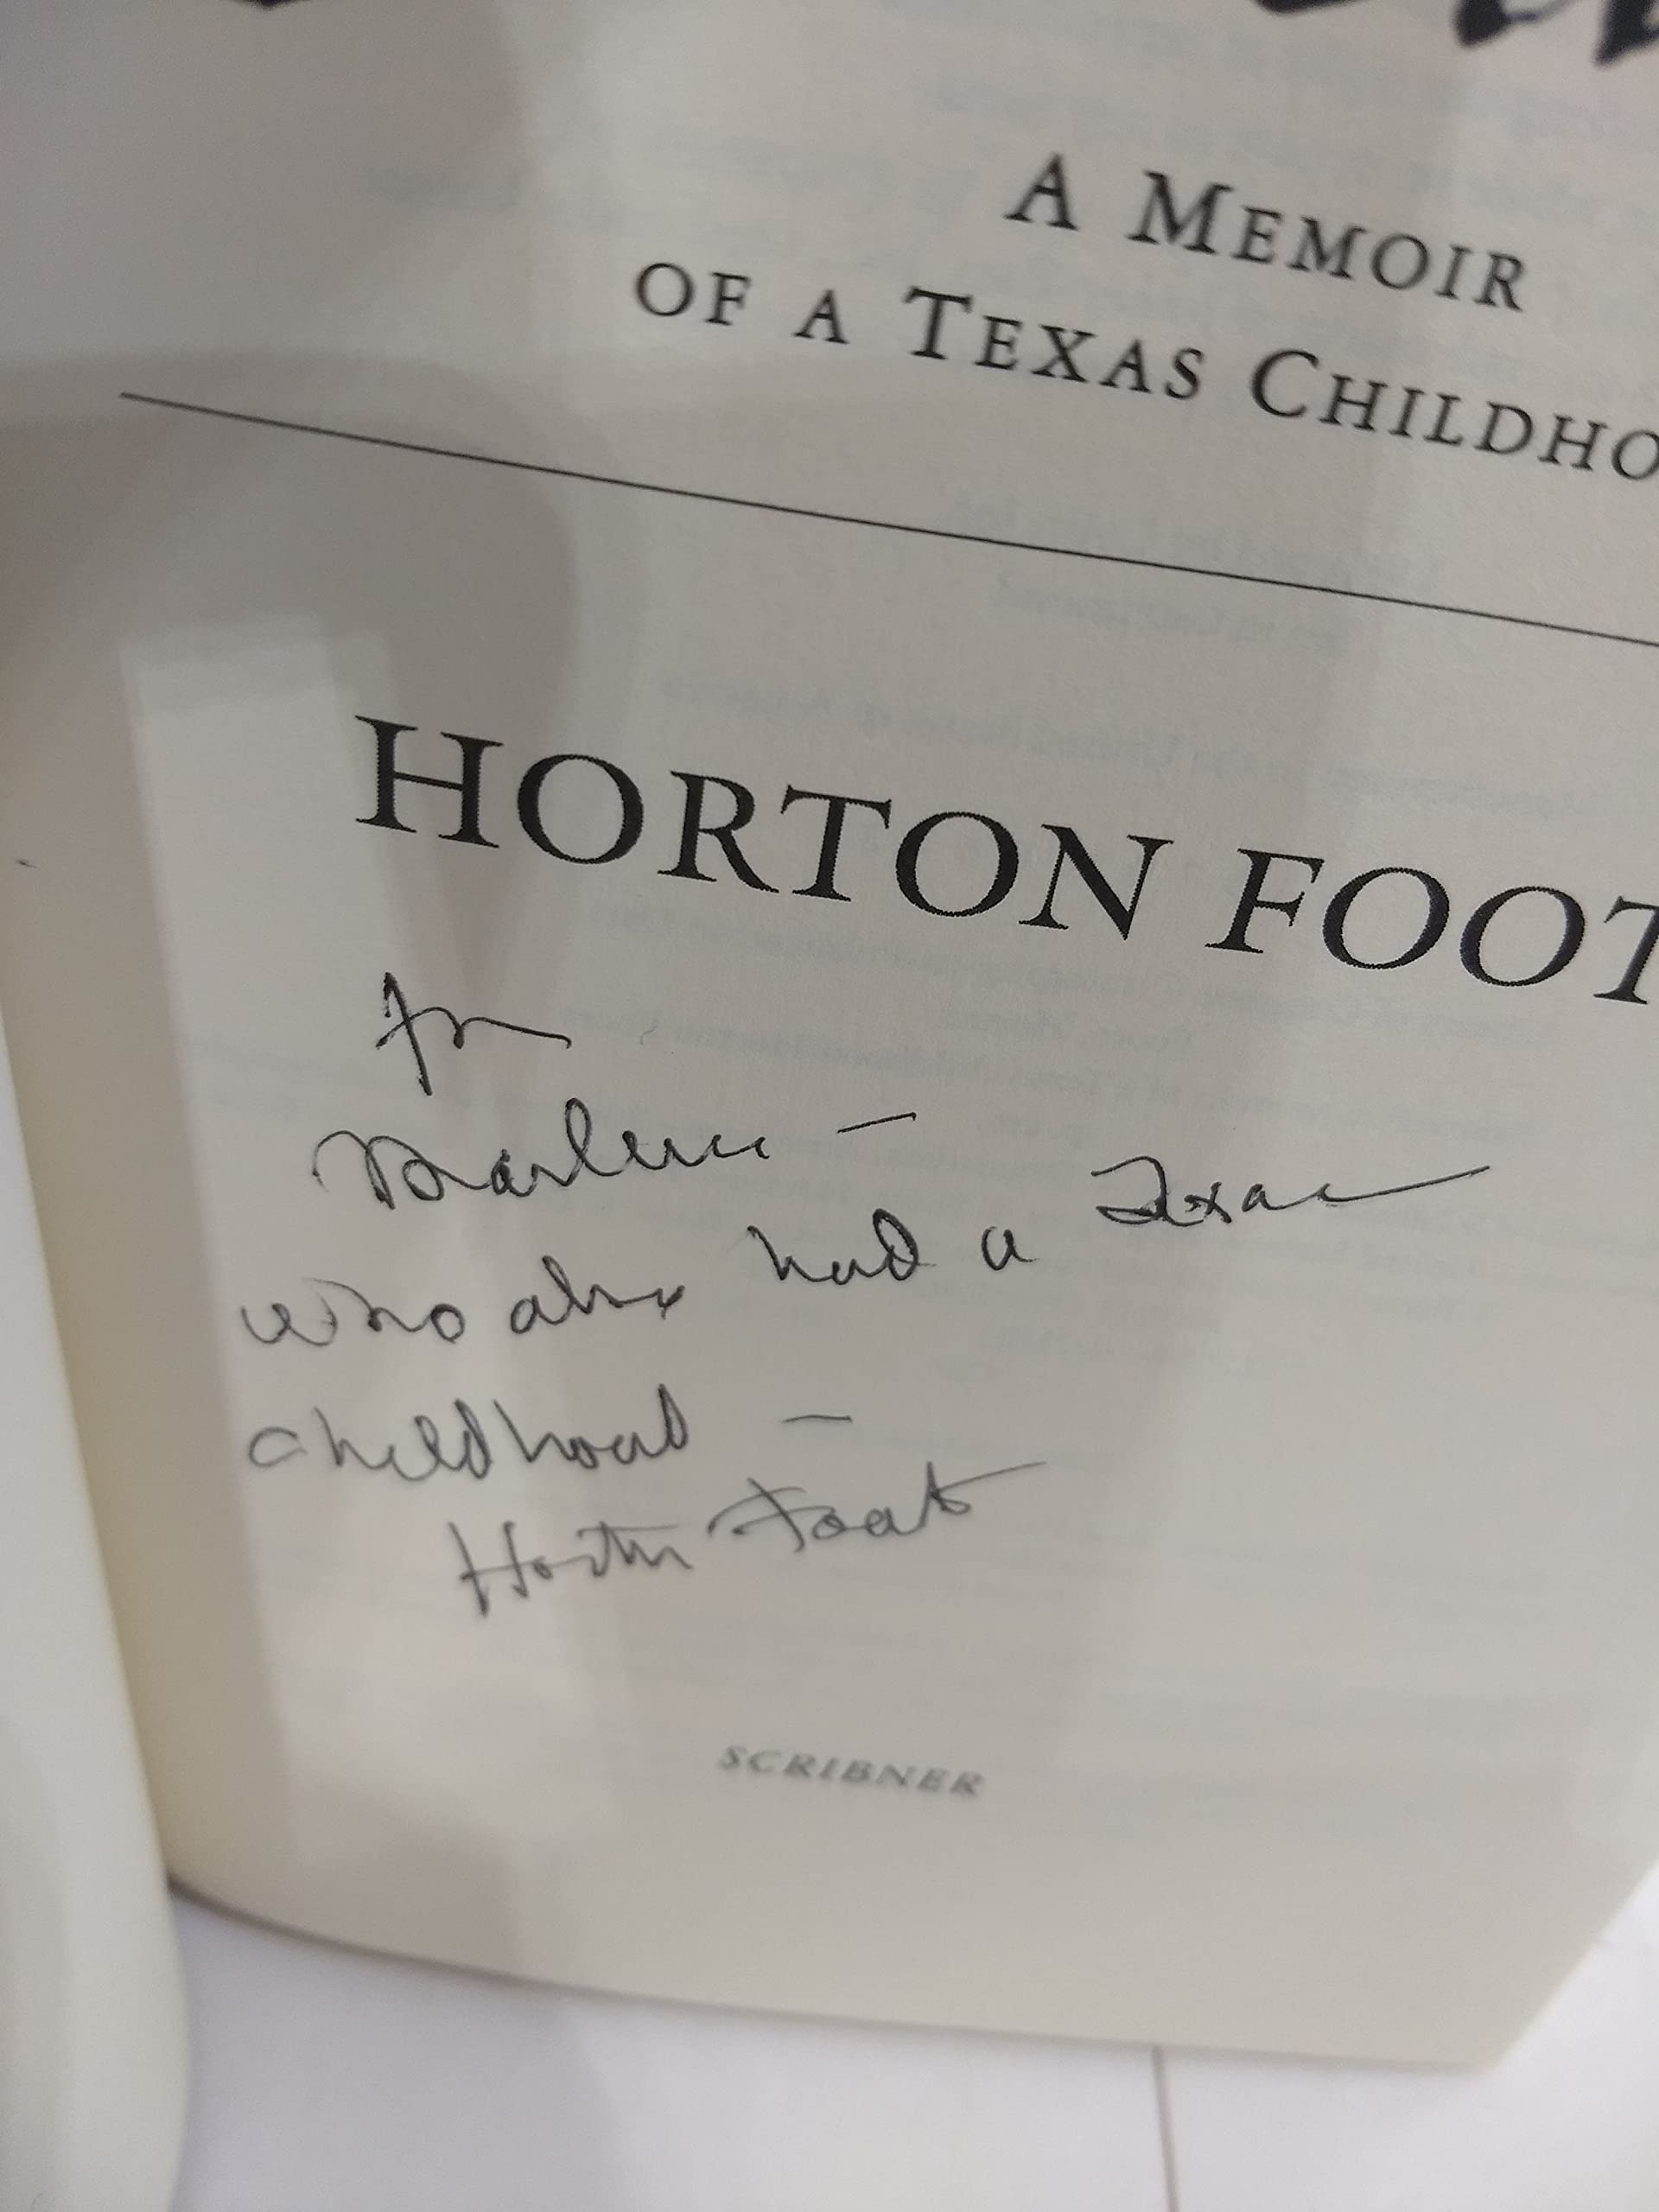 A MEMOIR
OF A TEXAS CHILDHO
HORTON FOOT
for
Marlene —
who also had a Texas
childhood —
Horton Foote
SCRIBNER